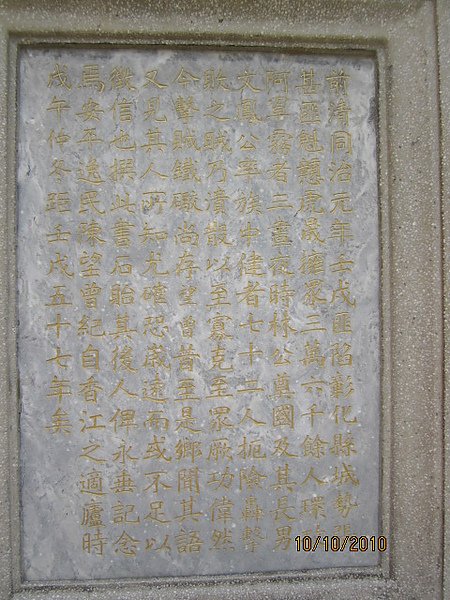 前清同治元年壬戌匪陷彰化縣城勢張
甚匪魁戇虎晟擁眾三萬六千餘人環攻
阿罩霧者三晝夜時林公奠國及其長男
文鳳公率族中健者七十二人扼險轟擊
敗之賊乃潰散以至寡克至眾厥功偉然
今擊賊鐵礮尚存望曾昔至是鄉聞其語
又見其人所知尤確恐歲遠而或不足以
徵信也撰此書石貽其後人俾永垂記念
焉安平逸民陳望曾紀自香江之適廬時
戊午仲冬距壬戌五十七年矣
10/10/2010